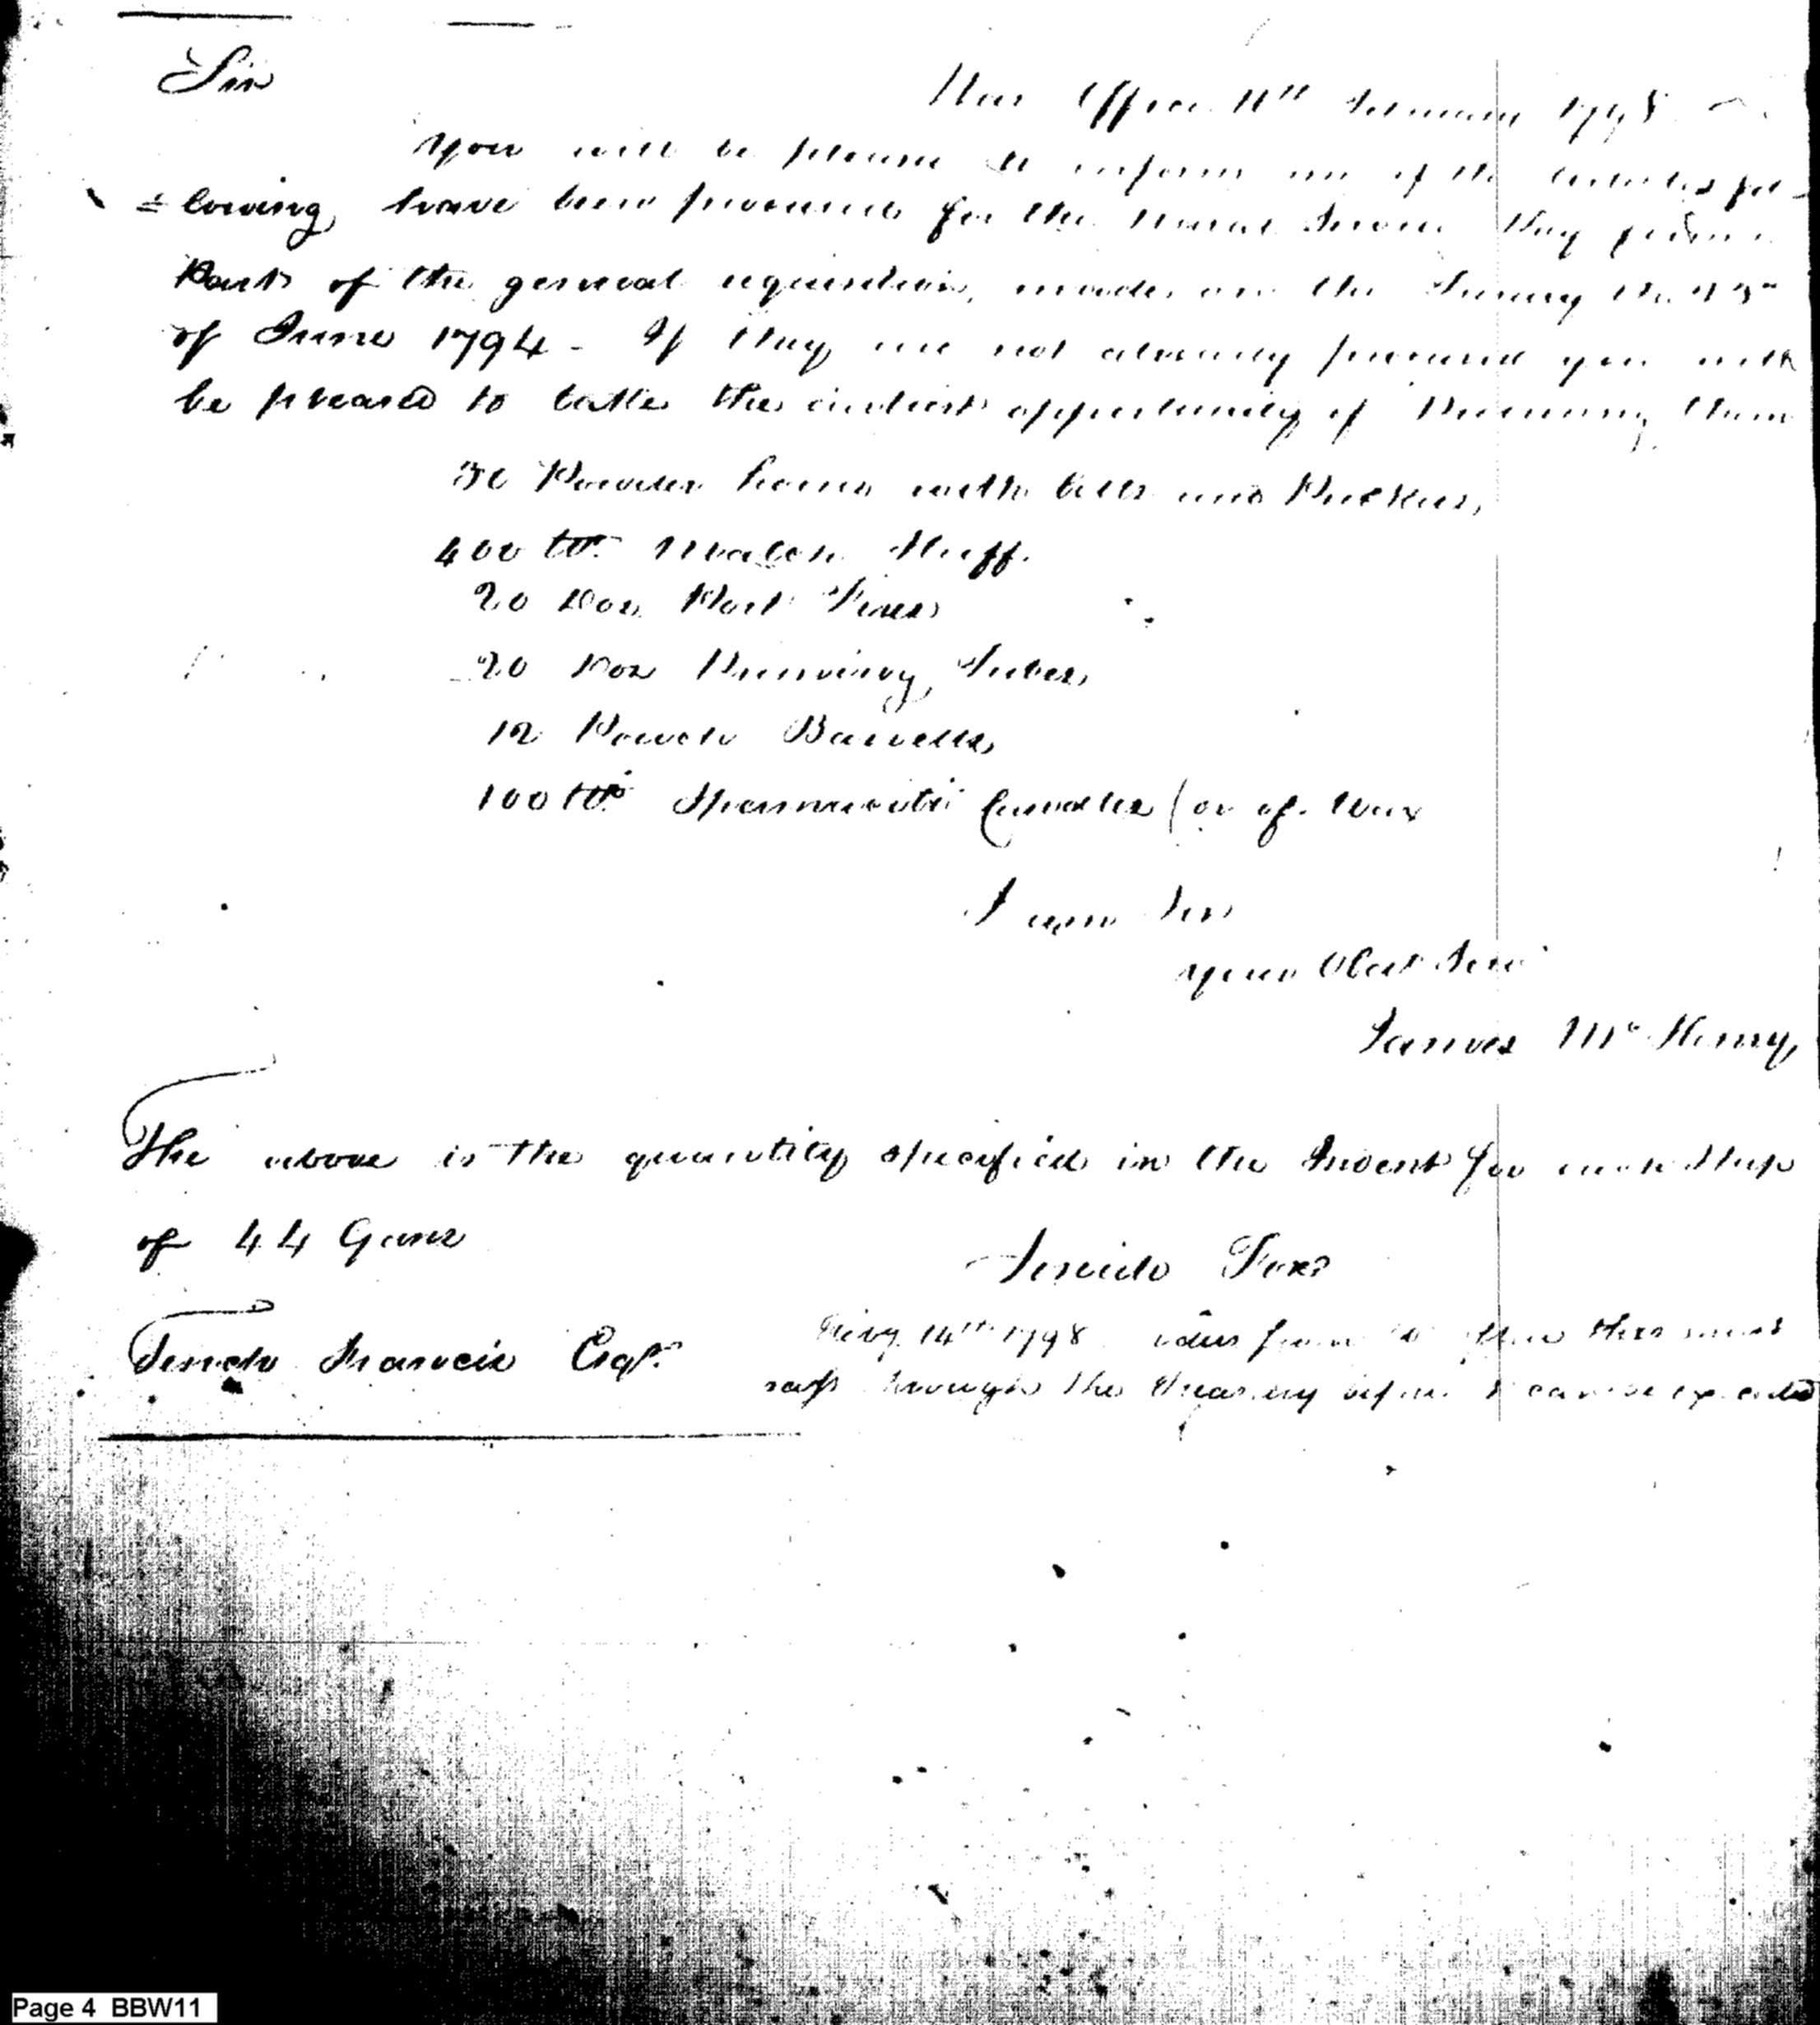 Sir
War Office 11th February 1798
You will be please to inform me if the Articles fol-
=lowing, have been procured for the Naval Service They form a
Part of the general requisition, made on the Treasury the
of June 1794 - If they are not already procured you will
be pleased to take the earliest opportunity of Procuring them
30 Powder horns with bitts and Prickers,
400 lbs. Match Stuff.
20 Doz Port Fires
20 Doz Priming Tubes,
12 Powder Barrells,
100 lbs. Spermaceti Candles (or of Wax
I am Sir
your Obet Servt
James McHenry,
The above is the quantity specified in the Indent for each Ship
of 44 Guns
Josiah Fox
Tench Francis Esqr.
Feby 14th 1798 this must
pass through the Treasury before it can be executed
Page 4 BBW11